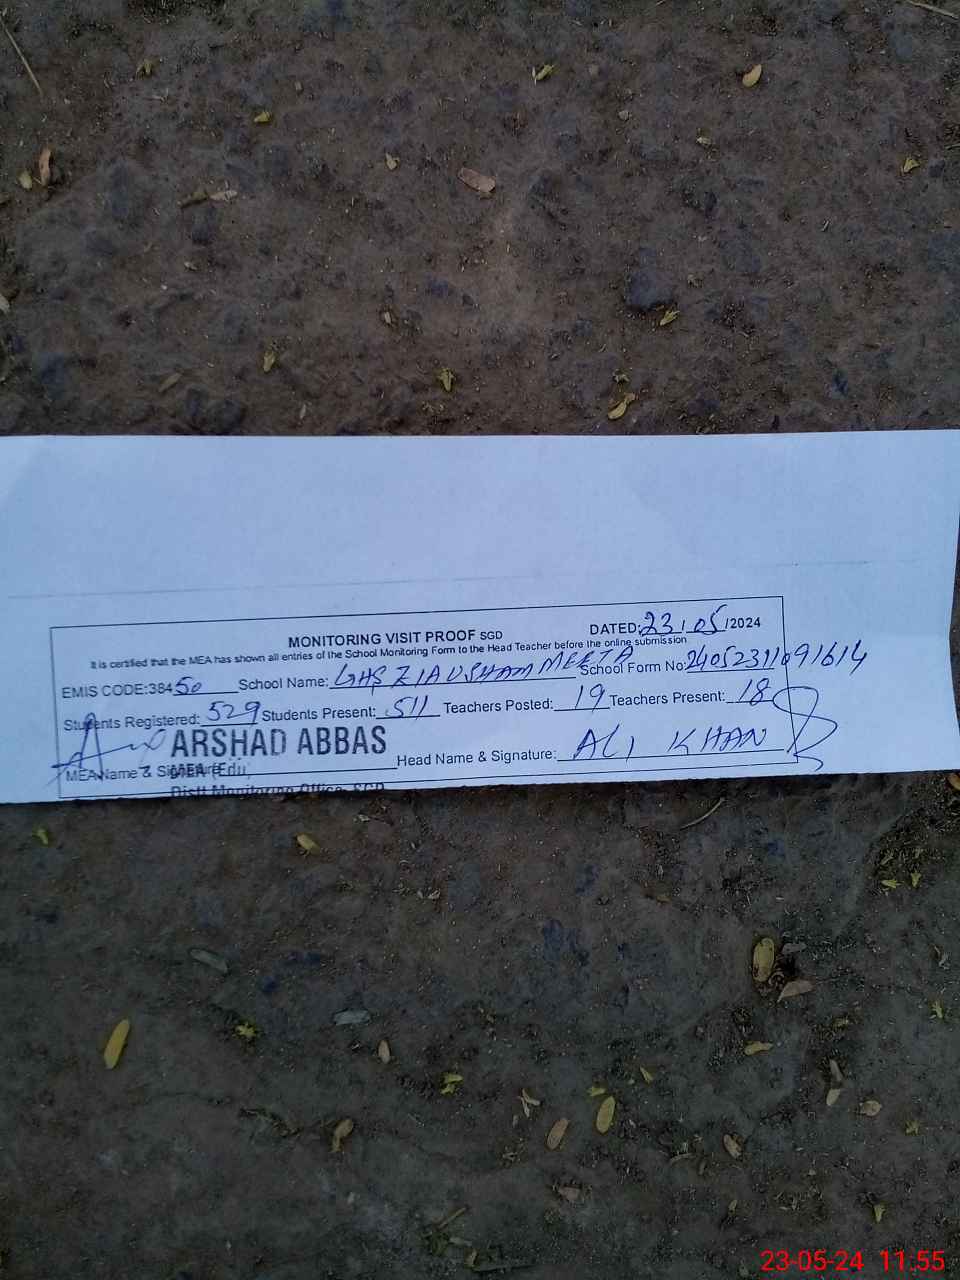 MONITORING VISIT PROOF SGD
DATED: 23/05/2024
It is certified that the MEA has shown all entries of the School Monitoring Form to the Head Teacher before the online submission
EMIS CODE:38450 School Name: GHS ZIAUSHAMMEETA School Form No: 24052311091614
Students Registered: 529 Students Present: 511 Teachers Posted: 19 Teachers Present: 18
ARSHAD ABBAS
MEA Name & Signature: Head Name & Signature: ALI KHAN
MEA (Edu)
Distt Monitoring Office, SGD
23-05-24 11:55